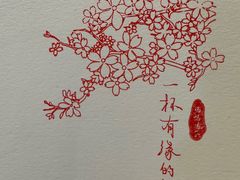 一杯有缘的